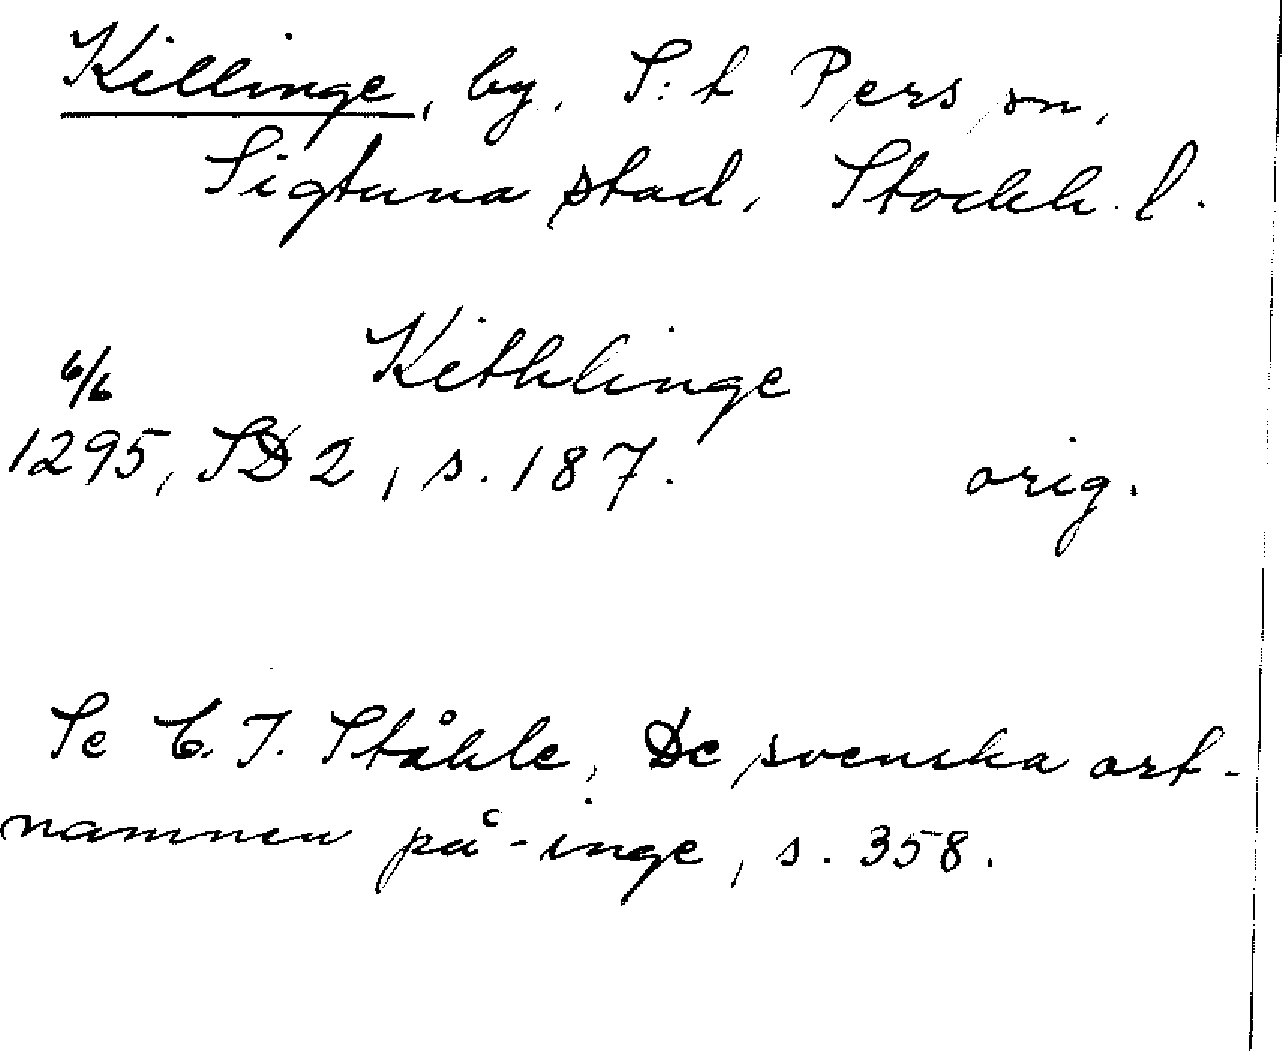 Killinge, by, S:t Pers sn,
Sigtuna stad, Stockh. l.
Kithlinge
6/6
1295, SD 2, s. 187. orig.
Se C. I. Ståhle, De svenska ort-
namnen på -inge, s. 358.